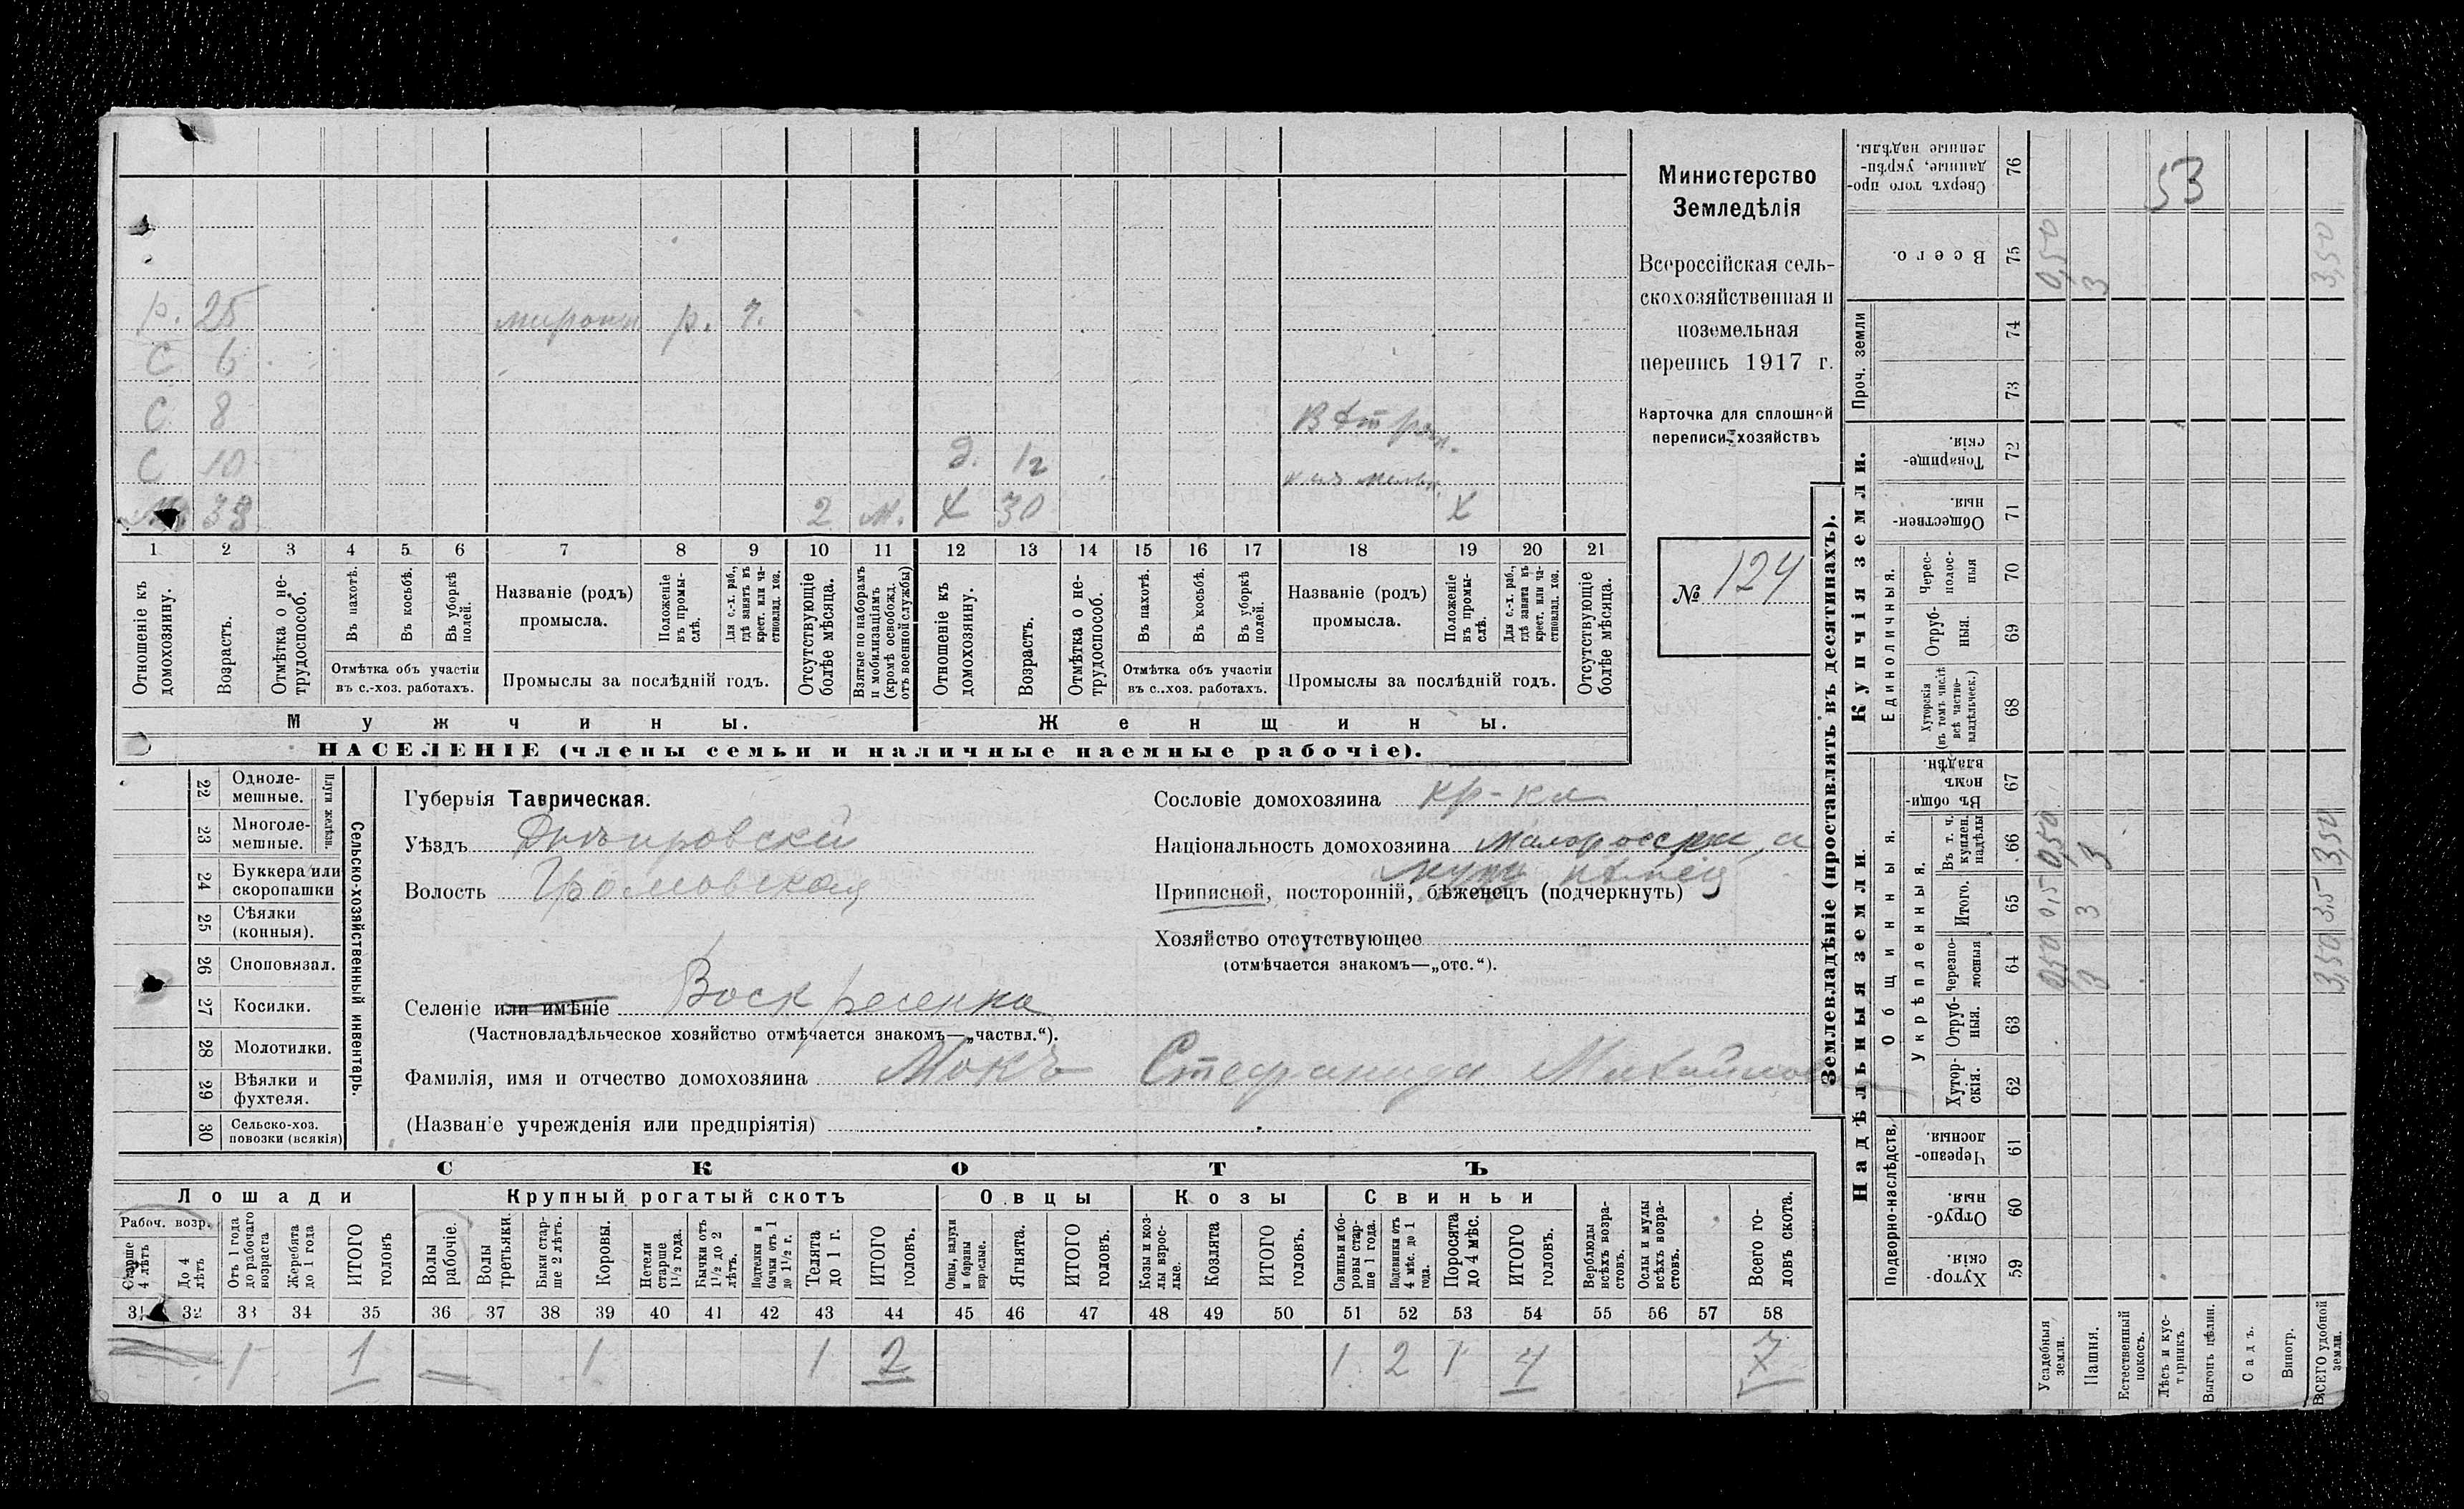 р. 25 р. 7.
С 6
С 8
С 10 д. 12
38 2 м. Х 30 Х
1 2 3 4 5 6 7 8 9 10 11 12 13 14 15 16 17 18 19 20 21
Отношеніе къ домохозяину.
Возрастъ.
Отмѣтка о не-
трудоспособ.
Въ пахотѣ.
Въ косьбѣ.
Въ уборкѣ полей.
Отмѣтка объ участіи
въ с.-хоз. работахъ.
Названіе (родъ)
промысла.
Положеніе
въ промы-
слѣ.
Для с.-х. раб.,
гдѣ занятъ въ
крест. или ча-
стновлад. хоз.
Промыслы за послѣдній годъ.
Отсутствующіе
болѣе мѣсяца.
Взятые по наборамъ
и мобилизаціямъ
(кромѣ освобожд.
отъ военной службы)
Отношеніе къ
домохозяину.
Возрастъ.
Отмѣтка о не-
трудоспособ.
Въ пахотѣ.
Въ косьбѣ.
Въ уборкѣ
полей.
Отмѣтка объ участіи
въ с.-хоз. работахъ.
Названіе (родъ)
промысла.
Положеніе
въ промы-
слѣ.
Для с.-х. раб.,
гдѣ занята въ
крест. или ча-
стновлад. хоз.
Промыслы за послѣдній годъ.
Отсутствующіе
болѣе мѣсяца.
Мужчины.
Женщины.
НАСЕЛЕНІЕ (члены семьи и наличные наемные рабочіе).
Министерство
Земледѣлія
Всероссійская сель-
скохозяйственная и
поземельная
перепись 1917 г.
Карточка для сплошной
переписи хозяйствъ
№ 124
22 Одноле-
мешные.
23 Многоле-
мешные.
Плуги желѣзн.
24 Буккера или
скоропашки
25 Сѣялки
(конныя).
26 Сноповязал.
27 Косилки.
28 Молотилки.
29 Вѣялки и
фухтеля.
30 Сельско-хоз.
повозки (всякія)
Сельско-хозяйственный инвентарь.
Губернія Таврическая.
Уѣздъ Днѣпровскій
Волость Громовская
Селеніе или имѣніе Воскресенка
(Частновладѣльческое хозяйство отмѣчается знакомъ—„частвл.“).
Фамилія, имя и отчество домохозяина Мокъ Стефанида Михайлов
(Названіе учрежденія или предпріятія)
Сословіе домохозяина кр-ка
Національность домохозяина малоросска, а
муж нѣмец
Приписной, посторонній, бѣженецъ (подчеркнуть)
Хозяйство отсутствующее
(отмѣчается знакомъ—„отс.“).
СКОТЪ
Лошади Крупный рогатый скотъ Овцы Козы Свиньи
Рабоч. возр.
Старше
4 лѣтъ
До 4
лѣтъ
Отъ 1 года
до рабочаго
возраста
Жеребята
до 1 года
ИТОГО
головъ
Волы
рабочіе.
Волы
третьяки.
Быки стар-
ше 2 лѣтъ.
Коровы.
Нетели
старше
1½ года.
Бычки отъ
1½ до 2
лѣтъ.
Подтелки и
бычки отъ 1
до 1½ г.
Телята
до 1 г.
ИТОГО
головъ.
Овцы, валухи
и бараны
взрослые.
Ягнята.
ИТОГО
головъ.
Козы и коз-
лы взрос-
лые.
Козлята
ИТОГО
головъ.
Свиньи и бо-
ровы стар-
ше 1 года.
Подсвинки отъ
4 мѣс. до 1
года.
Поросята
до 4 мѣс.
ИТОГО
головъ.
Верблюды
всѣхъ возра-
стовъ.
Ослы и мулы
всѣхъ возра-
стовъ.
Всего го-
ловъ скота.
31 32 33 34 35 36 37 38 39 40 41 42 43 44 45 46 47 48 49 50 51 52 53 54 55 56 57 58
1 1 1 1 2 1 2 1 4 7
Землевладѣніе (проставлять въ десятинахъ).
Купчія земли.
Надѣльныя земли.
Сверхъ того про-
данные, укрѣп-
ленные надѣлы. 76
53
Всего. 75 0,50 3 3,50
Проч. земли 74
73
Товарище-
скія. 72
Обществен-
ныя. 71
Единоличныя.
Черес-
полос-
ныя 70
Отруб-
ныя. 69
Хуторскія
(въ томъ числѣ
всѣ частно-
владѣльческ.) 68
Общинныя.
Въ общи-
номъ
владѣн. 67
Укрѣпленныя.
Въ т. ч.
куплен.
надѣлы 66 0,50 3 3,50
Итого. 65 0,5 3 3,5
Черезпо-
лосныя 64 0,50 3 3,50
Отруб-
ныя. 63
Хутор-
скія. 62
Подворно-наслѣдств.
Черезпо-
лосныя. 61
Отруб-
ныя. 60
Хутор-
скія. 59
Усадебныя
земли.
Пашня.
Естественный
покосъ.
Лѣсъ и кус-
тарникъ.
Выгонъ цѣлин.
Садъ.
Виногр.
ВСЕГО удобной
земли.